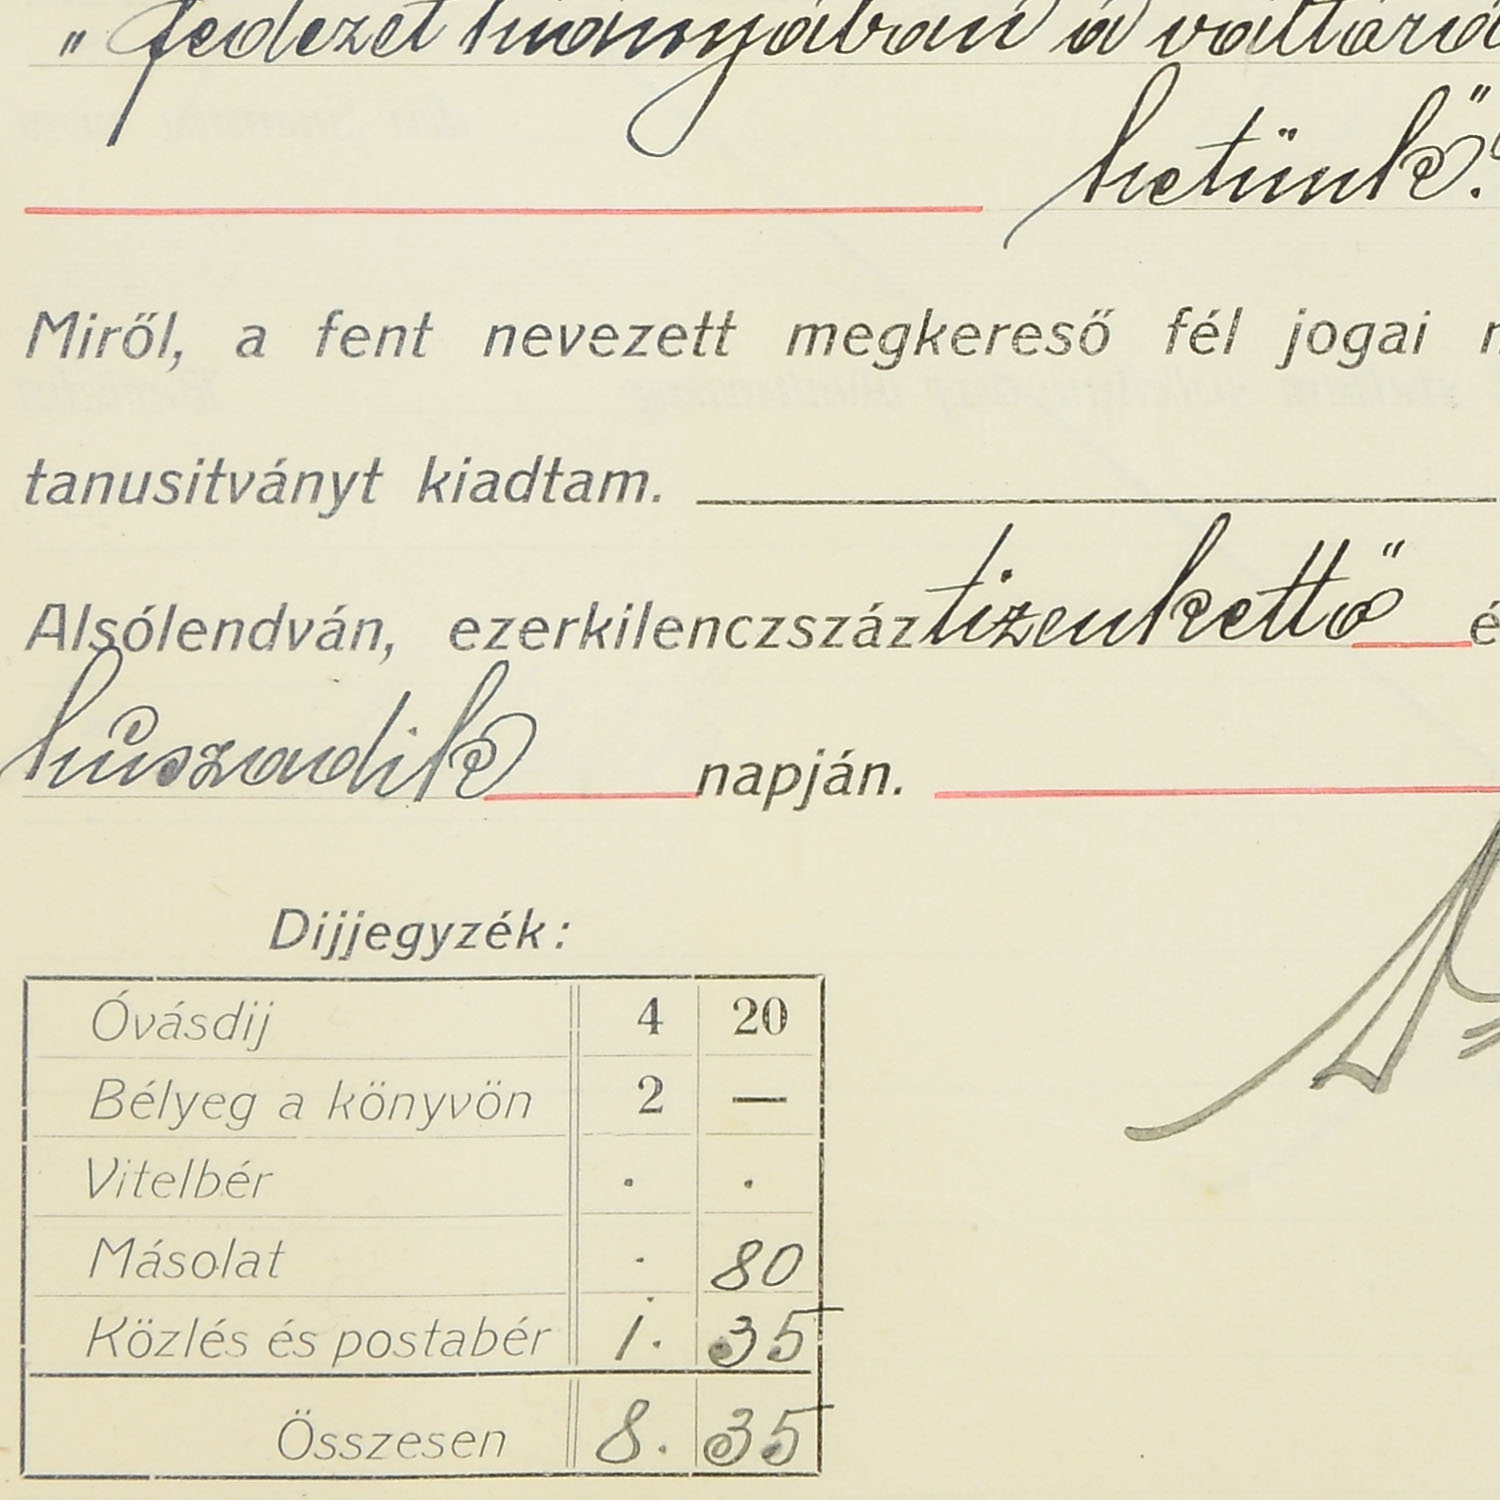 "fedezet hiányában a váltóra
hetünk".
Miről, a fent nevezett megkereső fél jogai
tanusitványt kiadtam.
Alsólendván, ezerkilenczszáz tizenkettő é
huszadik napján.
Dijjegyzék:
Óvásdij 4 20
Bélyeg a könyvön 2 —
Vitelbér . .
Másolat . 80
Közlés és postabér 1. 35
Összesen 8. 35